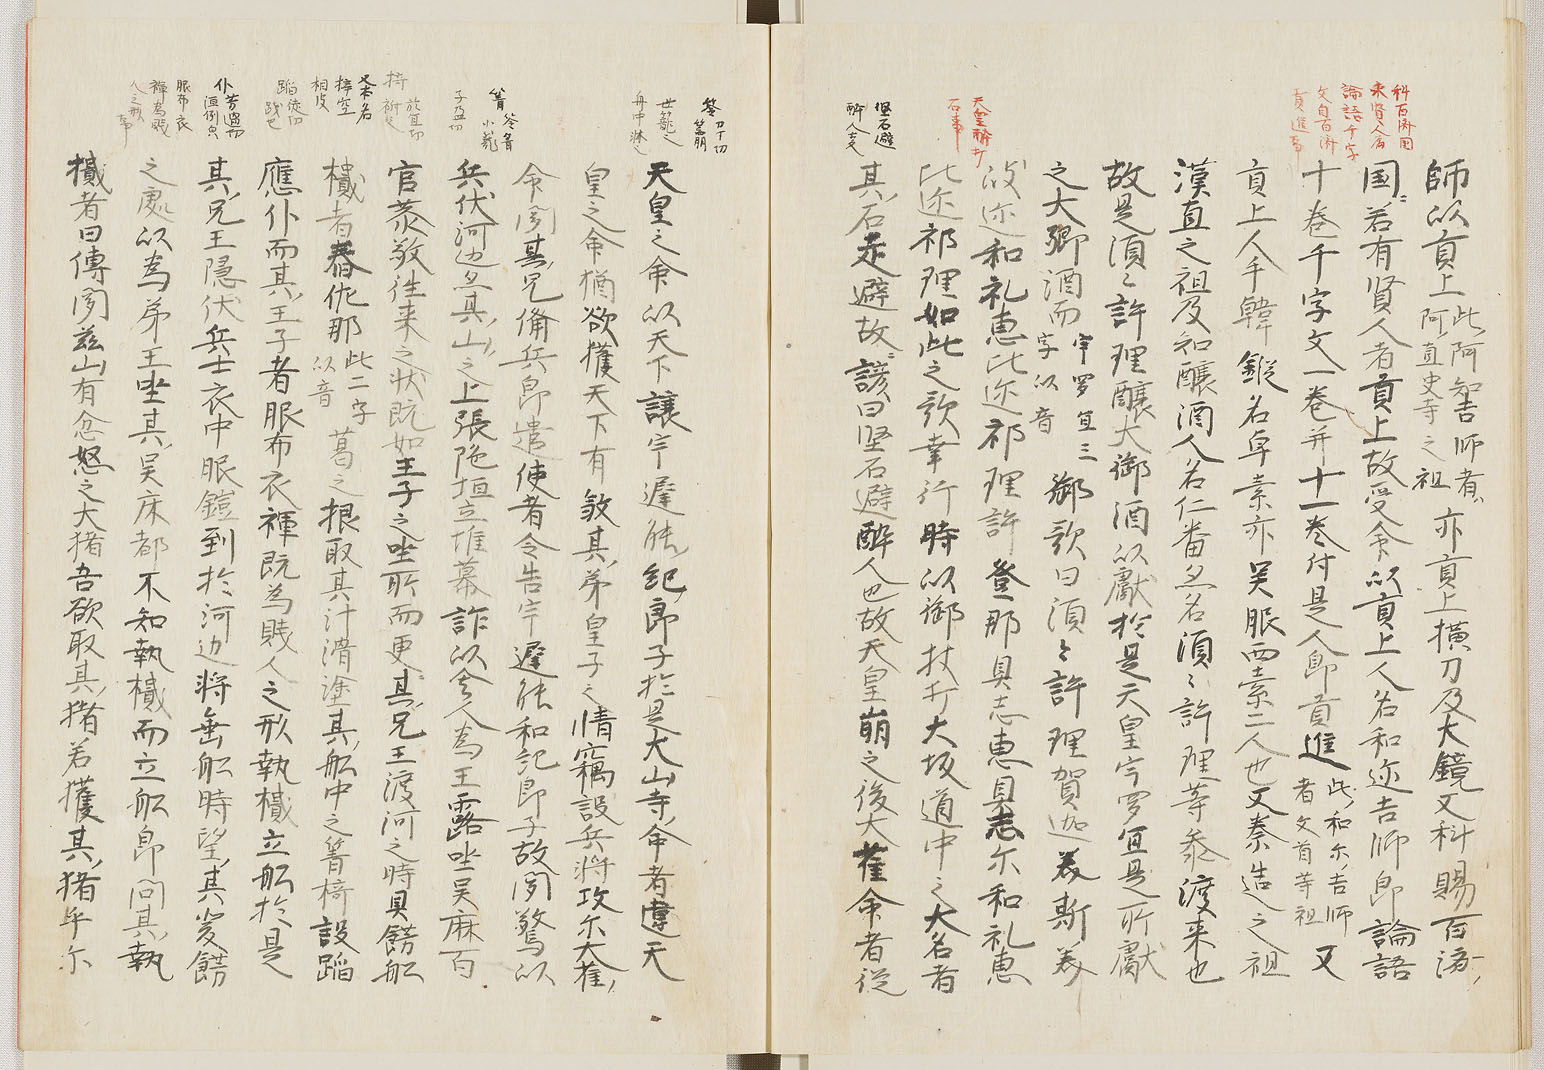 科百済国
求賢人為
論語千字
文自百済
貢進事
師以貢上此阿知吉師者亦貢上横刀及大鏡又科賜百済
阿直史等之祖
国若有賢人者貢上故受命以貢上人名和迩吉師即論語
十巻千字文一巻并十一巻付是人即貢進此和尓吉師又
者文首等祖
貢上人手韓鍛名卓素亦吴服西素二人也又秦造之祖
漢直之祖及知釀酒人名仁番亦名湏ミ許理等参渡来也
故是湏ミ許理釀大御酒以獻於是天皇宇罗宜是所獻
之大御酒而宇罗宜三御歌曰湏ミ許理賀迦美斯美
字以音
天皇酔打
石事
岐迩和礼恵比迩祁理許登那具志恵具志尓和礼恵
比迩祁理如此之歌幸行時以御杖打大坂道中之大名者
堅石避
酔人也
其石走避故諺曰堅石避酔人也故天皇崩之後大雀命者従
苓力丁切
籠
世籠也
舟中床
天皇之命以天下譲宇遅能紀郎子於是大山守命者違天
皇之命猶欲獲天下有敎其弟皇子之情竊設兵将攻尓大雀
命聞其兄備兵即遣使者令告宇遅能和記郎子故聞驚以
箐 苓青
小籠
子盈切
兵伏河边亦其山之上張絁垣立帷幕詐以舎人為王露坐吴床百
官恭敬往来之状既如王子之坐所而更其兄王渡河之時具餝舩
檝者舂佐那此二字葛之根取其汁滑塗其舩中之箐椅設蹈
以音
應仆而其王子者服布衣褌既為賎人之形執檝立舩於是
仆芳遇切
僵倒也
其兄王隠伏兵士衣中服鎧到於河边将乗舩時望其嚴餝
服布衣
褌為賎
人之形
事
之處以為弟王坐其吴床都不知執檝而立舩即問其執
檝者曰傳聞茲山有忿怒之大猪吾欲取其猪若獲其猪乎尓